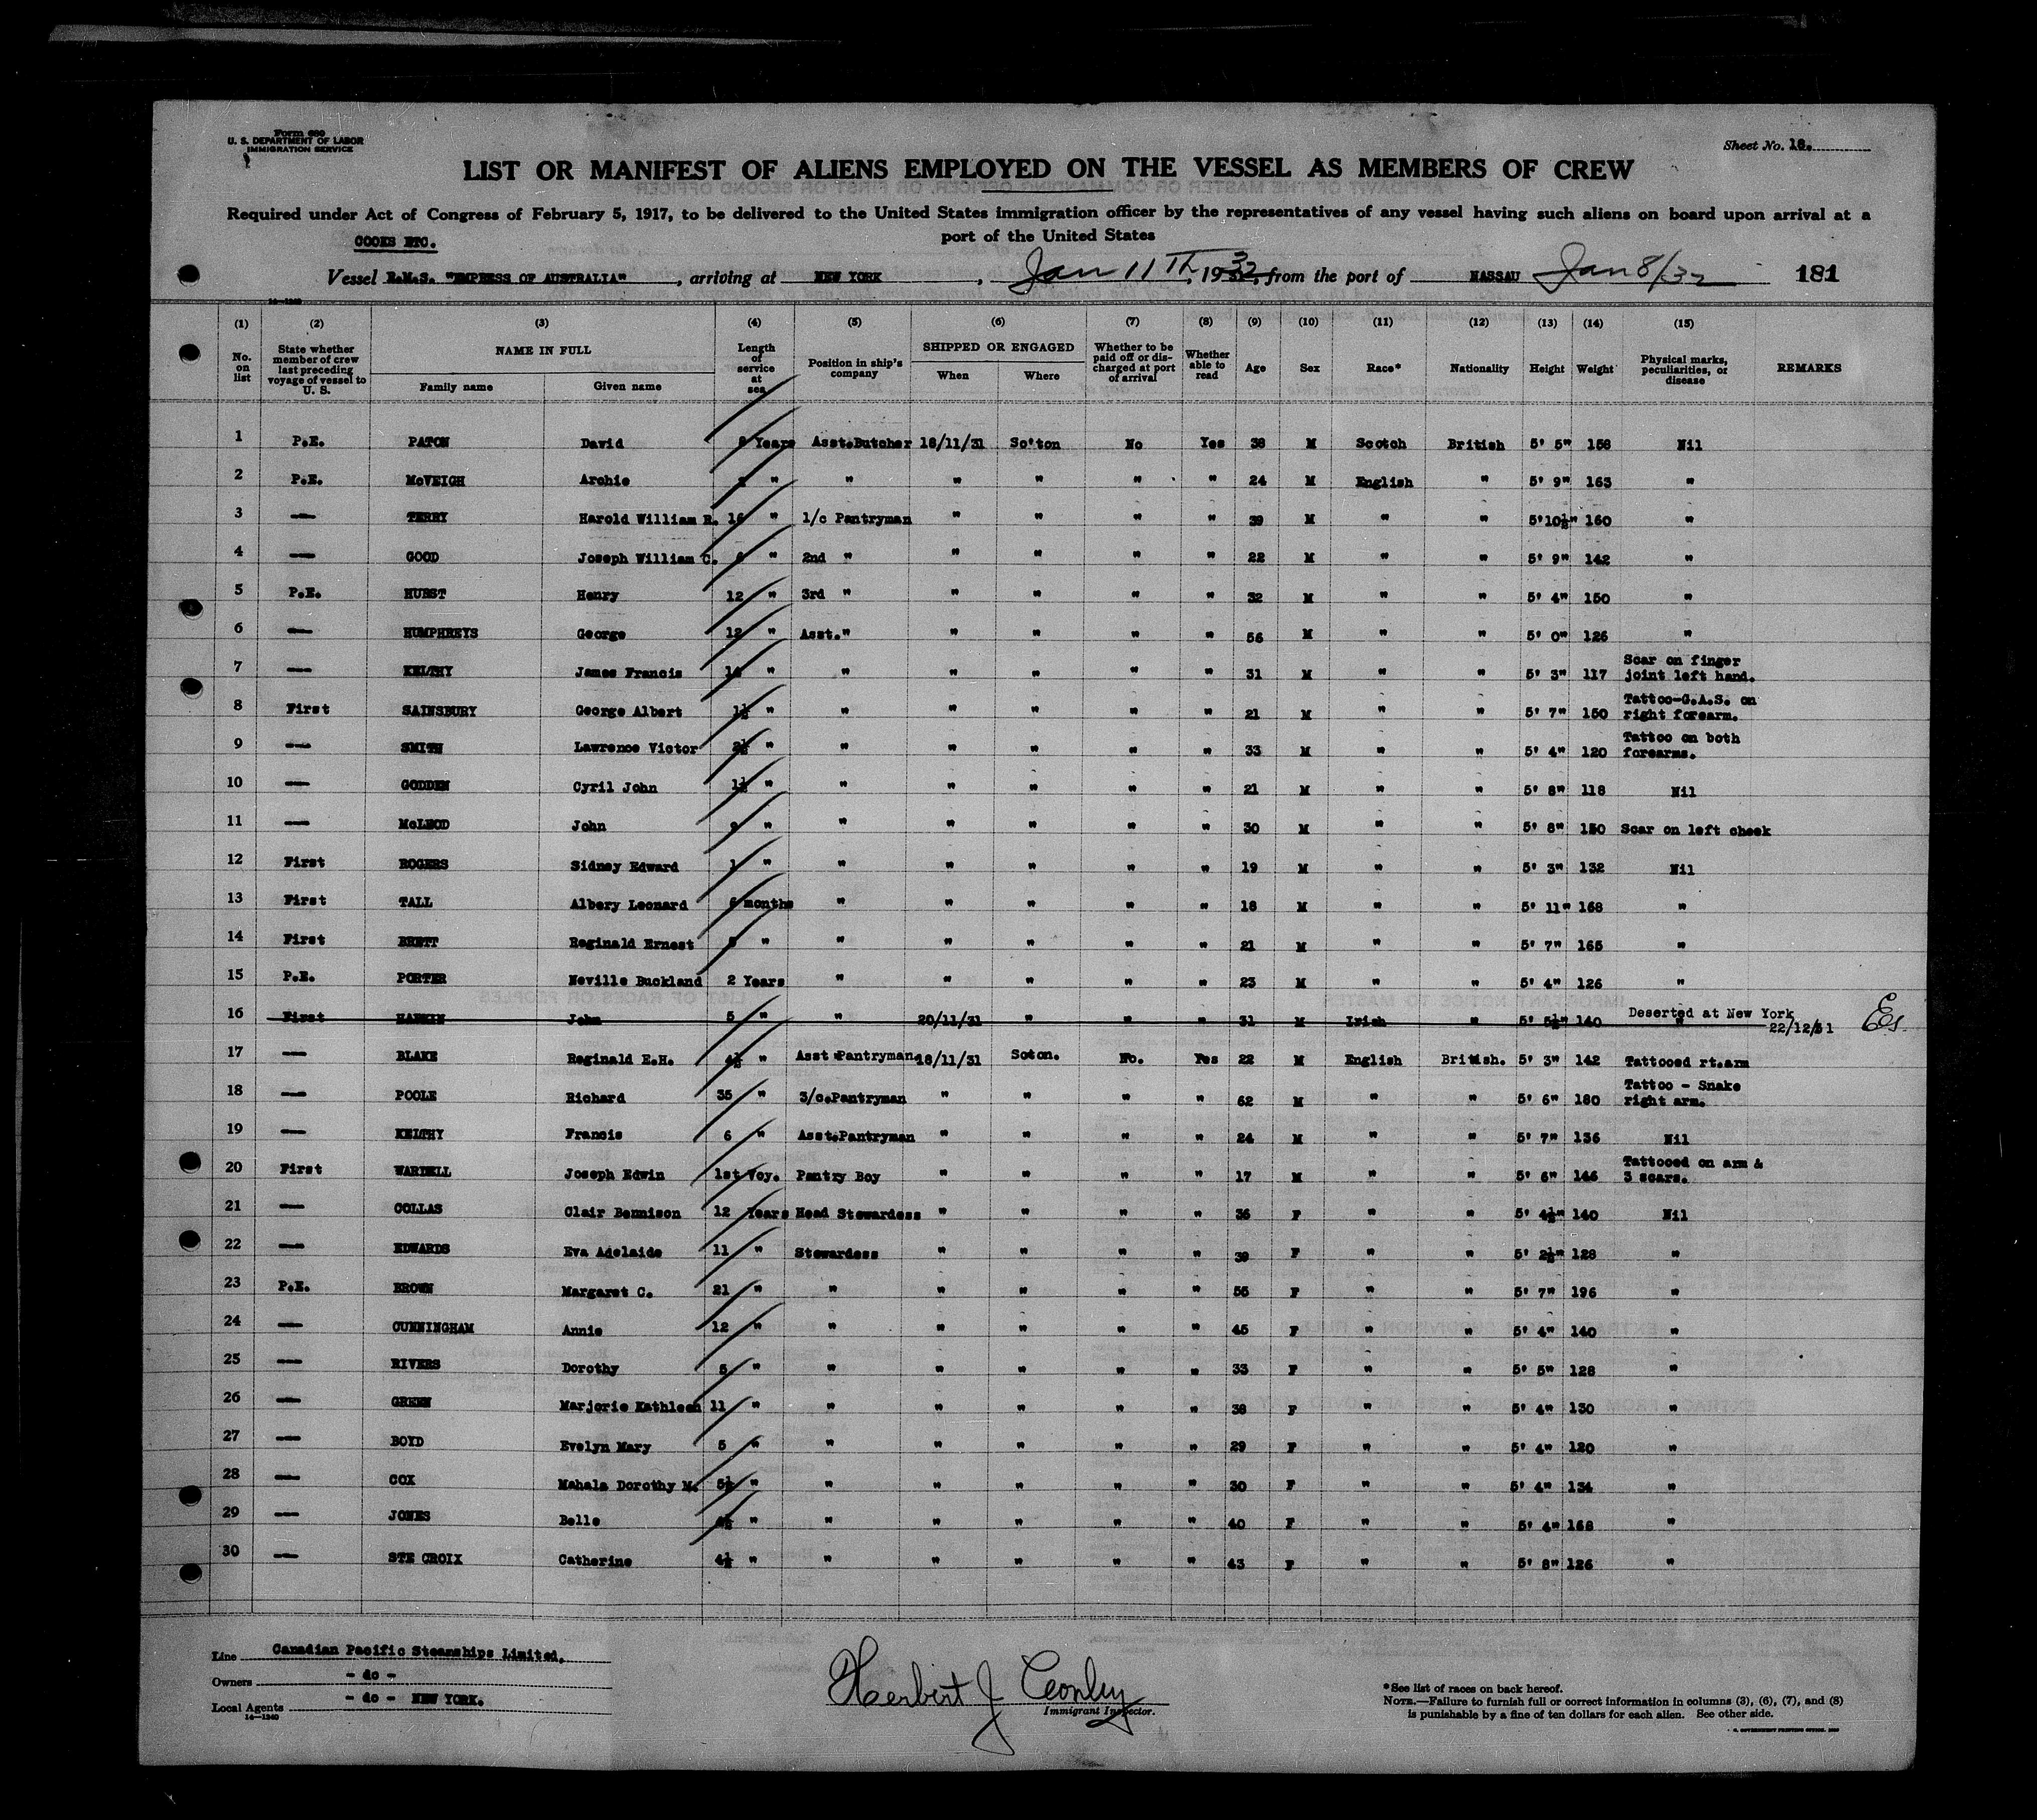 Form 689
U. S. DEPARTMENT OF LABOR
IMMIGRATION SERVICE
Sheet No. 18.
LIST OR MANIFEST OF ALIENS EMPLOYED ON THE VESSEL AS MEMBERS OF CREW
Required under Act of Congress of February 5, 1917, to be delivered to the United States immigration officer by the representatives of any vessel having such aliens on board upon arrival at a
port of the United States
COOKS ETC.
Vessel R.M.S. "EMPRESS OF AUSTRALIA", arriving at NEW YORK, Jan 11th, 1932, from the port of NASSAU Jan 8/32 181
14-1240
(1) (2) (3) (4) (5) (6) (7) (8) (9) (10) (11) (12) (13) (14) (15)
No. on list State whether member of crew last preceding voyage of vessel to U. S. NAME IN FULL Family name Given name Length of service at sea Position in ship's company SHIPPED OR ENGAGED When Where Whether to be paid off or discharged at port of arrival Whether able to read Age Sex Race* Nationality Height Weight Physical marks, peculiarities, or disease REMARKS
1 P.E. PATON David Years Asst.Butcher 18/11/31 So'ton No Yes 38 M Scotch British 5' 5" 158 Nil
2 P.E. McVEIGH Archie " " " " " " 24 M English " 5' 9" 163 "
3 — TERRY Harold William R. 16 " 1/c Pantryman " " " " 39 M " " 5'10½" 160 "
4 — GOOD Joseph William C. " 2nd " " " " " 22 M " " 5' 9" 142 "
5 P.E. HURST Henry 12 " 3rd " " " " " 32 M " " 5' 4" 150 "
6 — HUMPHREYS George 12 " Asst." " " " " 56 M " " 5' 0" 126 "
7 — KELTHY James Francis " " " " " " 31 M " " 5' 3" 117 Scar on finger joint left hand.
8 First SAINSBURY George Albert 1½ " " " " " " 21 M " " 5' 7" 150 Tattoo-G.A.S. on right forearm.
9 — SMITH Lawrence Victor 2½ " " " " " " 33 M " " 5' 4" 120 Tattoo on both forearms.
10 — GODDEN Cyril John 1½ " " " " " " 21 M " " 5' 8" 118 Nil
11 — McLEOD John 9 " " " " " " 30 M " " 5' 8" 150 Scar on left cheek
12 First ROGERS Sidney Edward 1 " " " " " " 19 M " " 5' 3" 132 Nil
13 First TALL Albery Leonard 6 months " " " " " 18 M " " 5' 11" 168 "
14 First BRETT Reginald Ernest " " " " " " 21 M " " 5' 7" 165 "
15 P.E. PORTER Neville Buckland 2 Years " " " " " 23 M " " 5' 4" 126 "
16 First HARKIN John 5 " " 20/11/31 " " " 31 M Irish " 5' 5½" 140 " Deserted at New York 22/12/31 Es.
17 — BLAKE Reginald E.H. 4½ " Asst Pantryman 18/11/31 Soton. No. Yes 22 M English British. 5' 3" 142 Tattooed rt.arm
18 — POOLE Richard 35 " 3/c.Pantryman " " " " 62 M " " 5' 6" 180 Tattoo - Snake right arm.
19 — KELTHY Francis 6 " Asst.Pantryman " " " " 24 M " " 5' 7" 136 Nil
20 First WARDELL Joseph Edwin 1st Voy. Pantry Boy " " " " 17 M " " 5' 6" 146 Tattooed on arm & 3 scars.
21 — COLLAS Clair Bennison 12 Years Head Stewardess " " " " 36 F " " 5' 4½" 140 Nil
22 — EDWARDS Eva Adelaide 11 " Stewardess " " " " 39 F " " 5' 2½" 128 "
23 P.E. BROWN Margaret C. 21 " " " " " " 55 F " " 5' 7" 196 "
24 — CUNNINGHAM Annie 12 " " " " " " 45 F " " 5' 4" 140 "
25 — RIVERS Dorothy 5 " " " " " " 33 F " " 5' 5" 128 "
26 — GREEN Marjorie Kathleen 11 " " " " " " 38 F " " 5' 4" 130 "
27 — BOYD Evelyn Mary 5 " " " " " " 29 F " " 5' 4" 120 "
28 — COX Mahala Dorothy M. 5½ " " " " " " 30 F " " 5' 4" 134 "
29 — JONES Belle 4½ " " " " " " 40 F " " 5' 4" 168 "
30 — STE CROIX Catherine 4½ " " " " " " 43 F " " 5' 8" 126 "
Line Canadian Pacific Steamships Limited.
Owners - do -
Local Agents - do - NEW YORK.
14-1240
Herbert J Conley
Immigrant Inspector.
*See list of races on back hereof.
NOTE.—Failure to furnish full or correct information in columns (3), (6), (7), and (8)
is punishable by a fine of ten dollars for each alien. See other side.